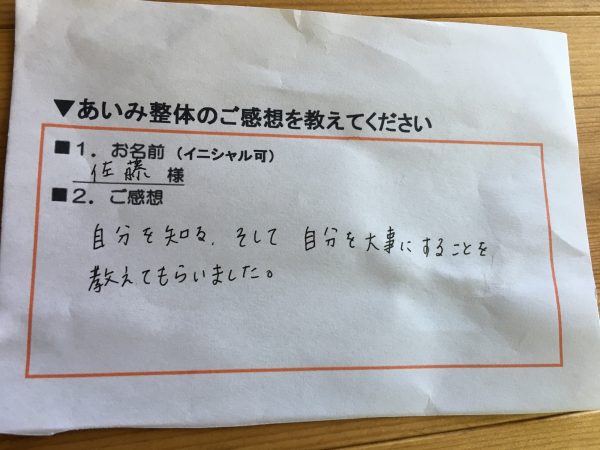 ▼あいみ整体のご感想を教えてください
■1．お名前（イニシャル可）
佐藤 様
■2．ご感想
自分を知る、そして 自分を大事にすることを
教えてもらいました。